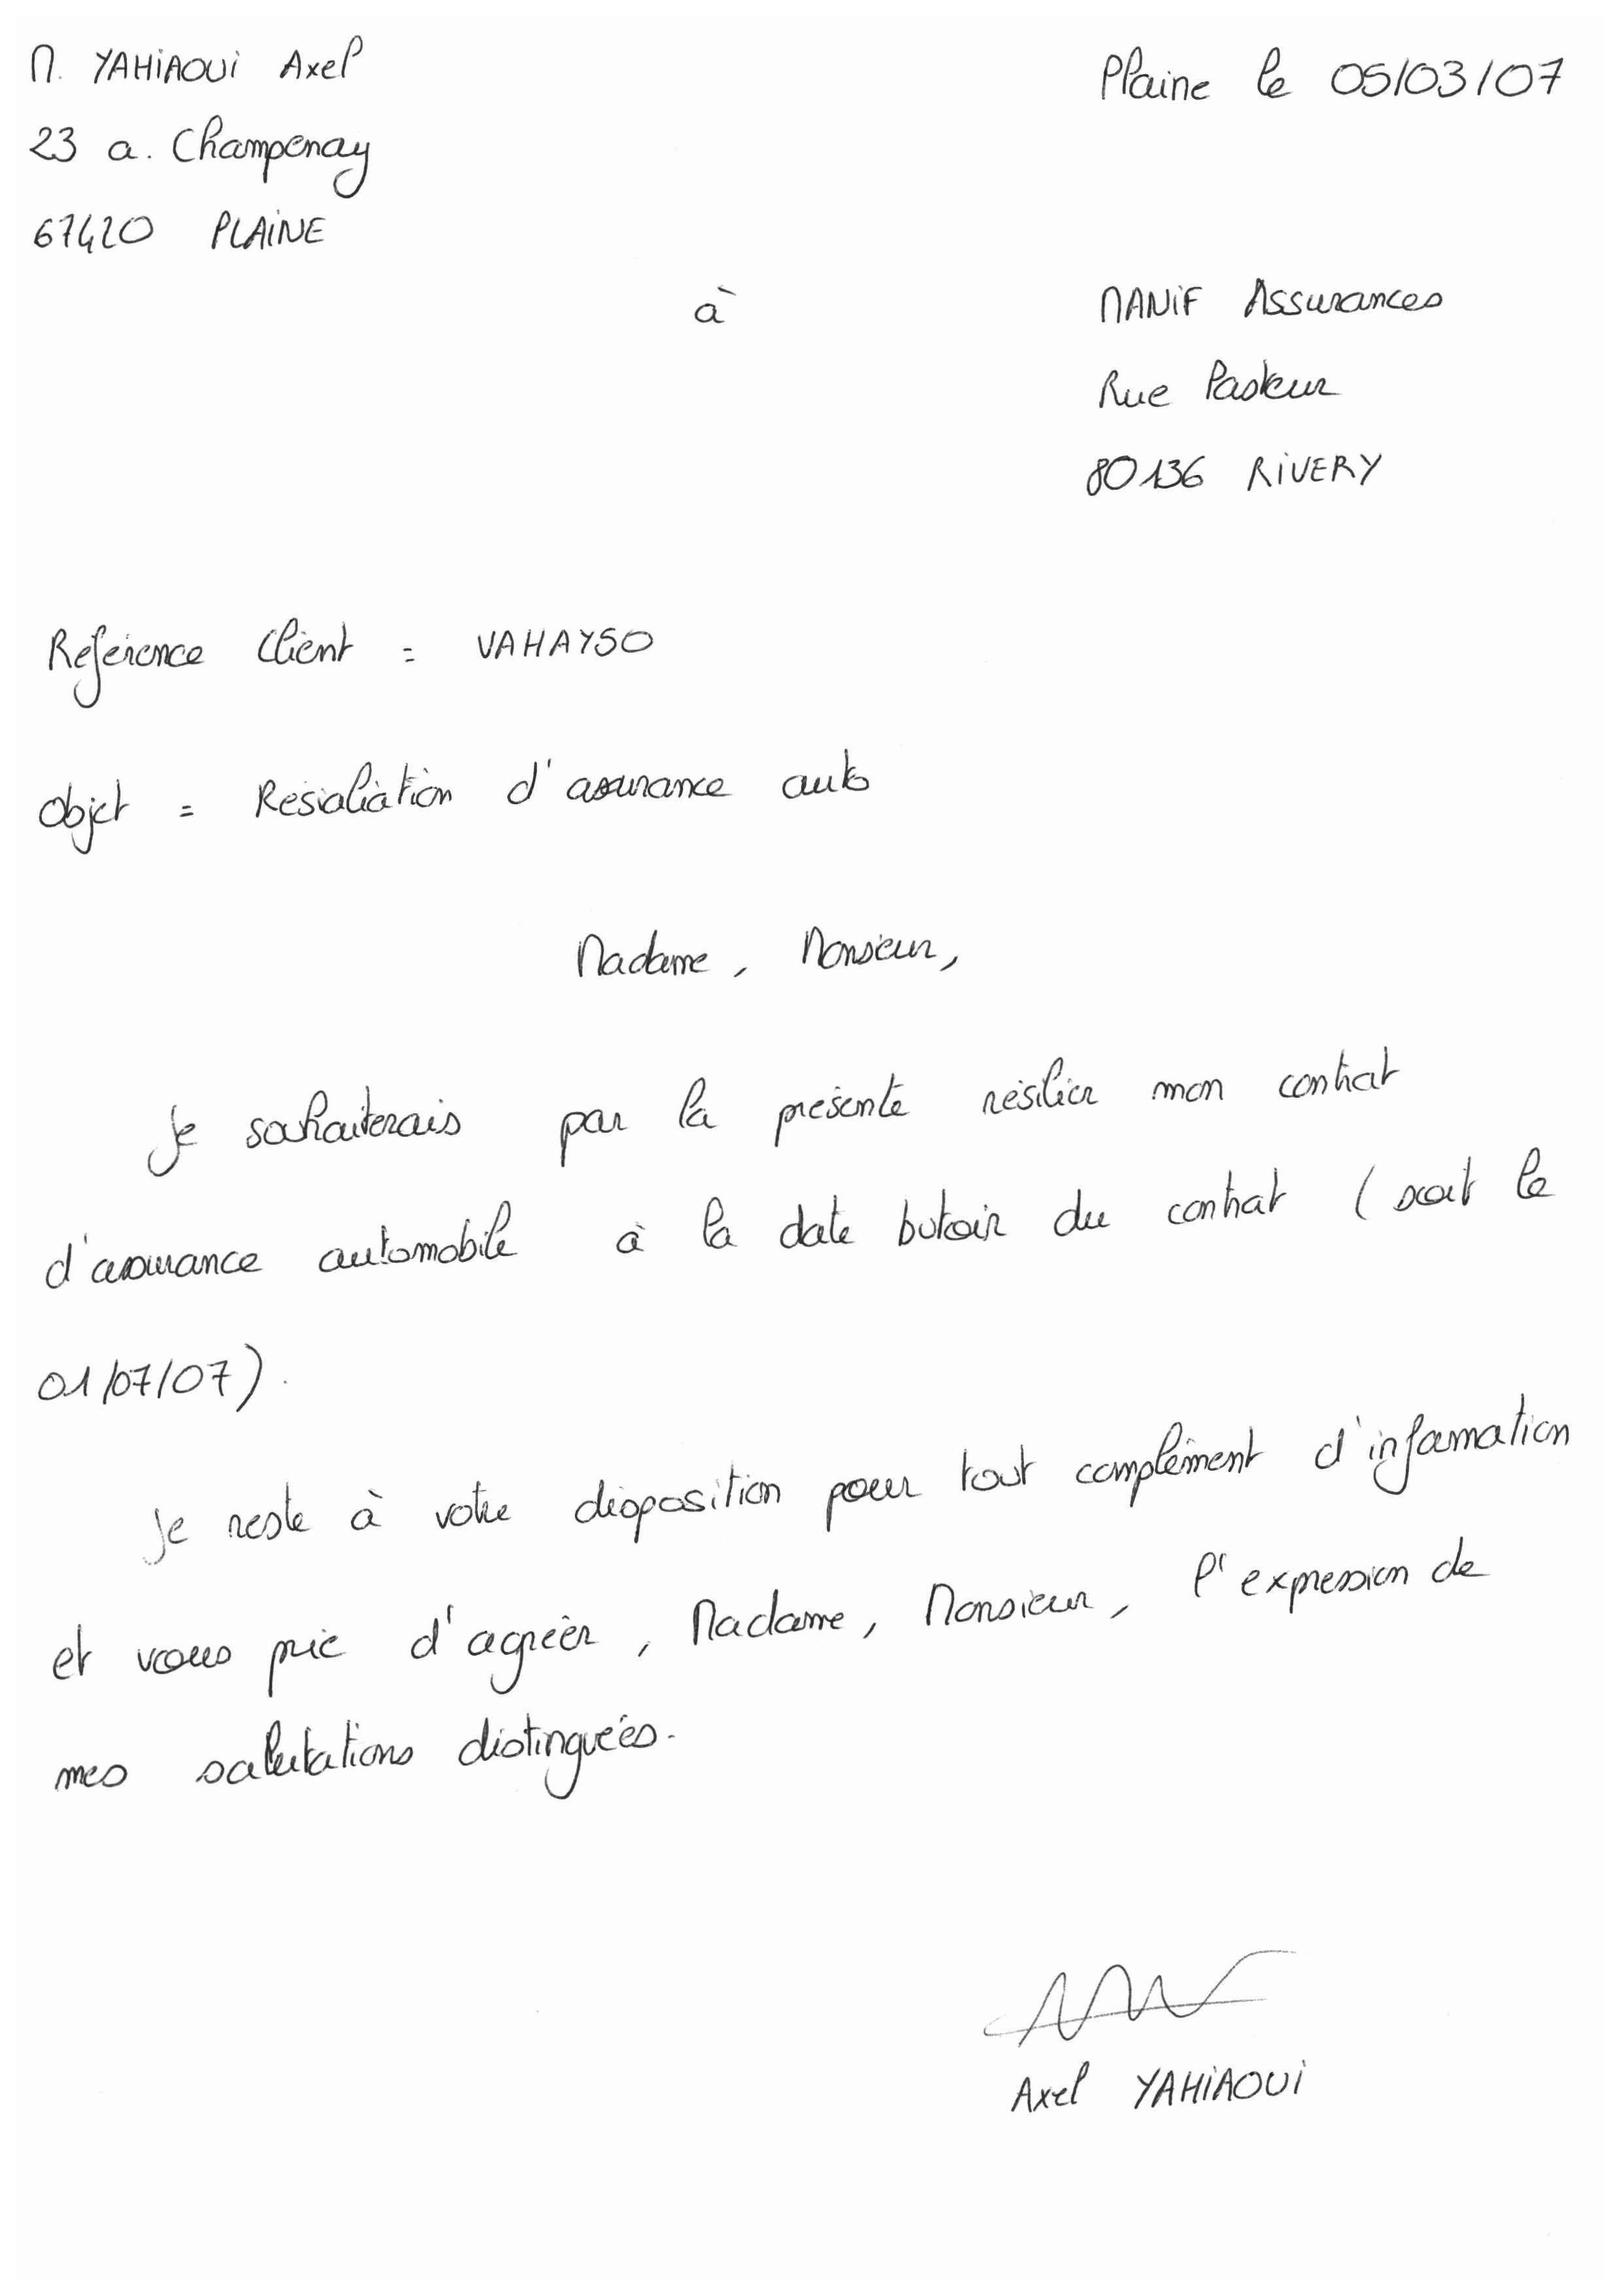 M. YAHiAOUi Axel
Plaine le 05/03/07
23 a. Champenay
67420 PLAiNE
à
MANiF Assurances
Rue Pasteur
80136 RiVERY
Référence Client = VAHAY50
Objet = Résialiation d'assurance auto
Madame, Monsieur,
Je souhaiterais par la présente résilier mon contrat
d'assurance automobile à la date butoir du contrat (soit le
01/07/07).
Je reste à votre disposition pour tout complément d'information
et vous prie d'agréer, Madame, Monsieur, l'expression de
mes salutations distinguées.
Axel YAHiAOUi